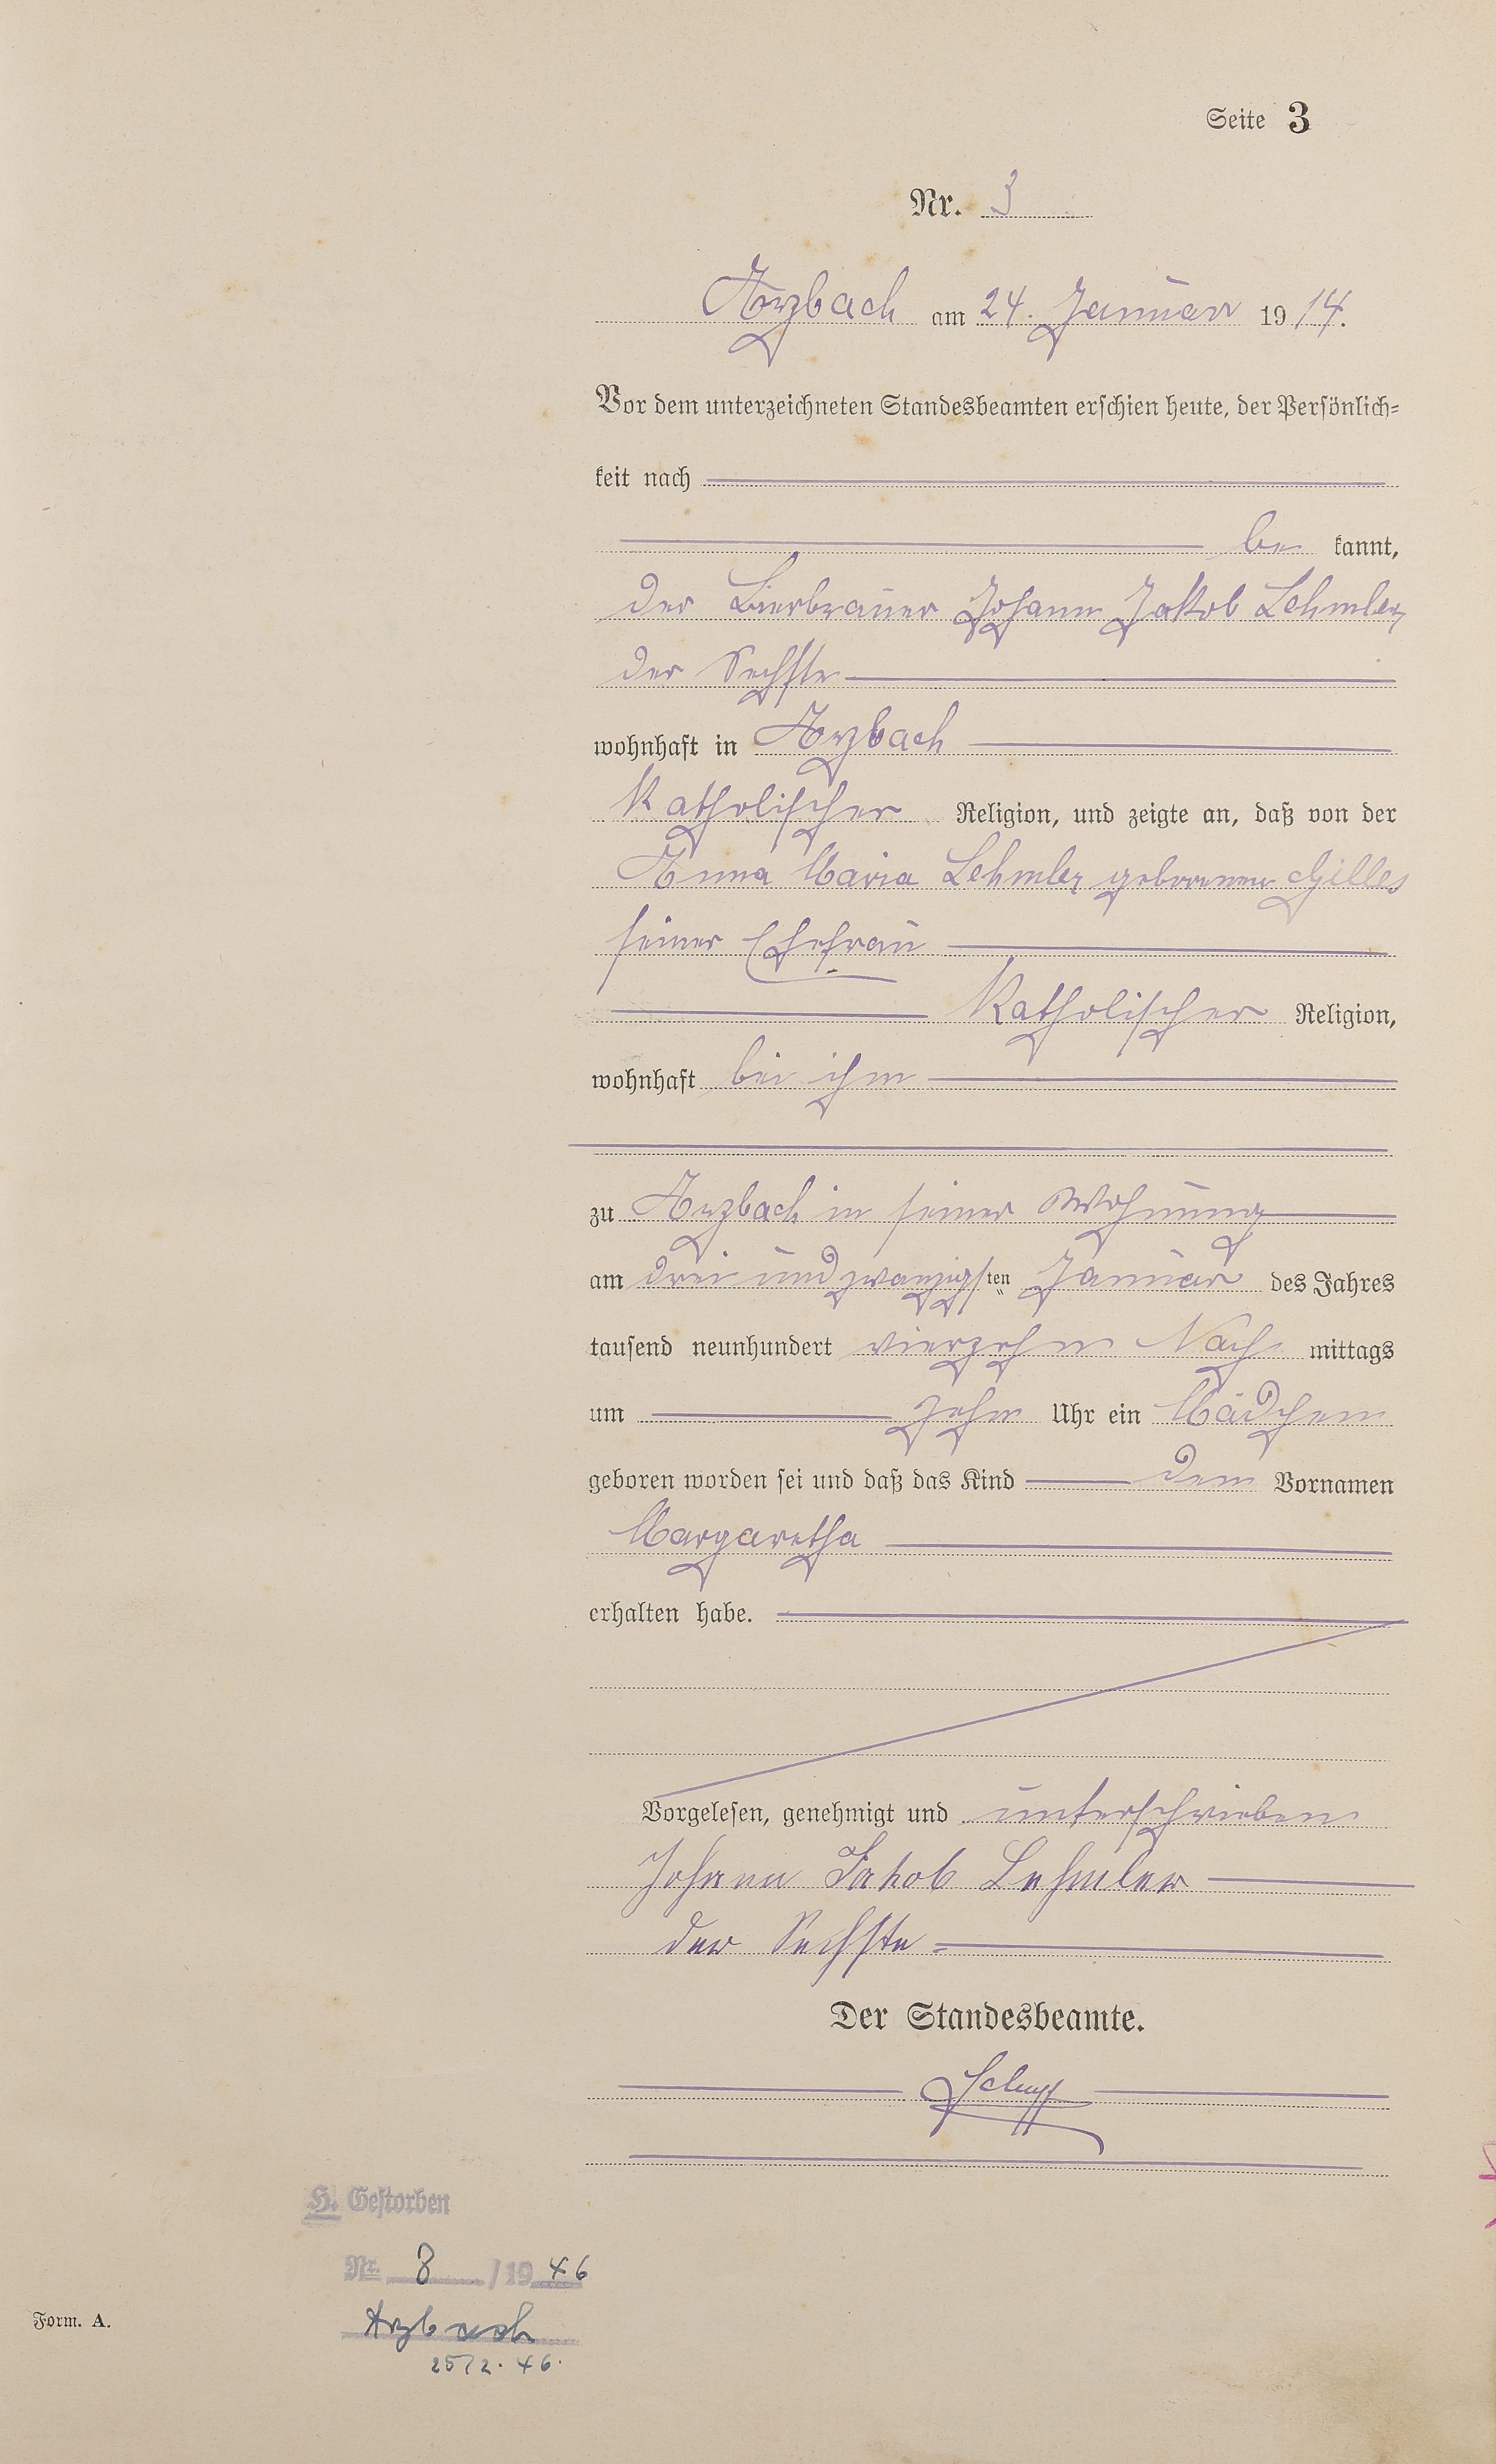 Seite 3
Nr. 3
Arzbach am 24. Januar 1914.
Vor dem unterzeichneten Standesbeamten erschien heute, der Persönlich=
keit nach
be kannt,
der Bierbrauer Johann Jakob Lehmler
der Sechste
wohnhaft in Arzbach
Katholischer Religion, und zeigte an, daß von der
Anna Maria Lehmler geborenen Gilles
seiner Ehefrau
Katholischer Religion,
wohnhaft bei ihm
zu Arzbach in seiner Wohnung
am drei und zwanzigsten Januar des Jahres
tausend neunhundert vierzehn Nach mittags
um zehn Uhr ein Mädchen
geboren worden sei und daß das Kind den Vornamen
Margaretha
erhalten habe.
Vorgelesen, genehmigt und unterschrieben
Johann Jakob Lehmler
der Sechste
Der Standesbeamte.
H. Gestorben
Nr. 8 /1946
Arzbach
25/2. 46.
Form. A.